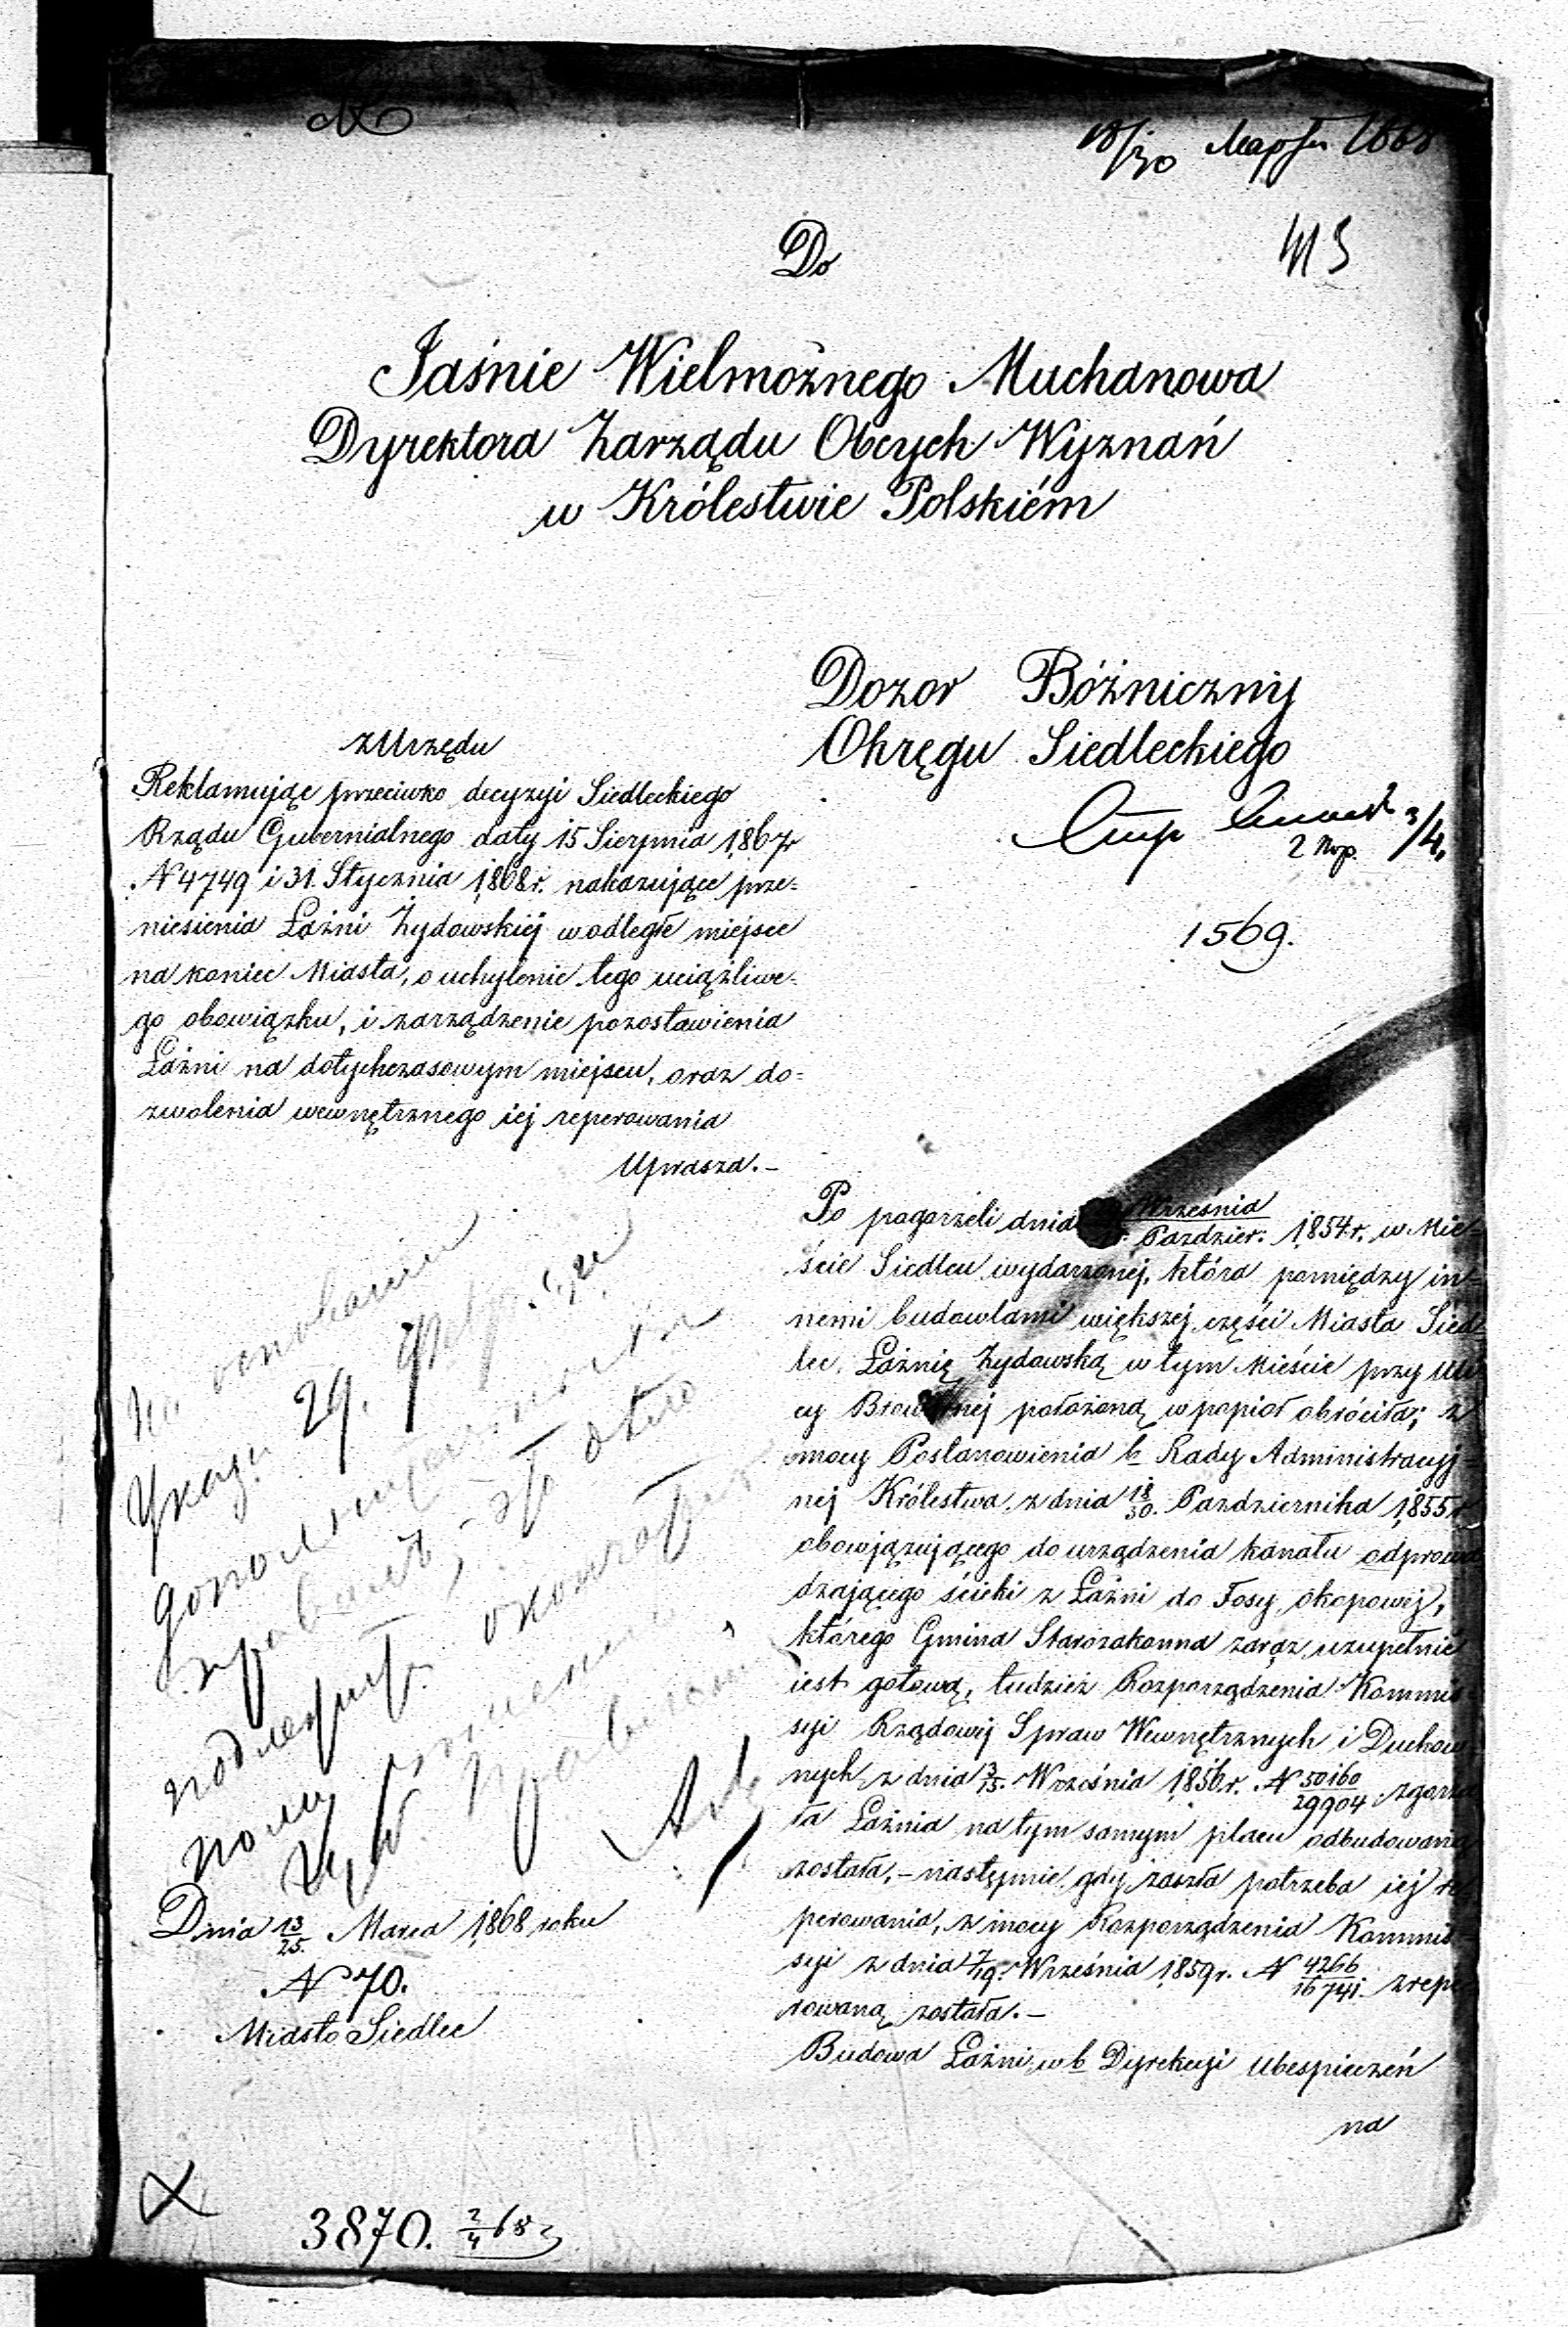 18/30 Марта 1868
413
Do
Jaśnie Wielmożnego Muchanowa
Dyrektora Zarządu Obcych Wyznań
w Królestwie Polskiém
Dozor Bóżniczny
Okręgu Siedleckiego
3/4
1569.
z Urzędu
Reklamując przeciwko decyzyi Siedleckiego
Rządu Gubernialnego daty 15 Sierpnia 1867r
N 4749 i 31. Stycznia 1868r. nakazujące prze=
niesienia Łaźni Żydowskiéj w odległe miejsce
na koniec Miasta, o uchylenie tego uciążliwe-
go obowiązku, i zarządzenie pozostawienia
Łaźni na dotychczasowym miejscu, oraz do=
zwolenia wewnętrznego iéj reperowania
Uprasza.-
Po pogorzeli dnia Września/Pazdzier: 1854.r. w Mie=
ście Siedlcu wydarzonéj, która pomiędzy in=
nemi budowlami większéj części Miasta Sied=
lec, Łaźnię Żydowską w tym Mieście przy Uli
cy Browarnej położoną w popiół obróciła; z
mocy Postanowienia b Rady Administracyj=
néj Królestwa z dnia 18/30. Pazdziernika 1855 r
obowjązującego do urządzenia kanału odprowa
dzającego ścieki z Łaźni do Fosy okopowéj,
którego Gmina Starozakonna zaraz uzupełnić
iest gotową, tudzież Rozporządzenia Kommis
syi Rządowéj Spraw Wewnętrznych i Duchow
nych z dnia 3/15. Września 1856.r. N 50160/29904 zgorza
ła Łaźnia na tym samym placu odbudowaną
została,- następnie gdy zaszła potrzeba iéj re
perowania, z mocy Rozporządzenia Kommis
syi z dnia 7/19. Września 1859r. N 4266/16741. zrepe
rowaną została.-
Budowa Łaźni w b Dyrekcyi Ubespieczeń
na
На основании
Указа 29.
подлежит
Dnia 13/25. Marca 1868 roku
N 70.
Miasto Siedlec
3870. 2/4 68